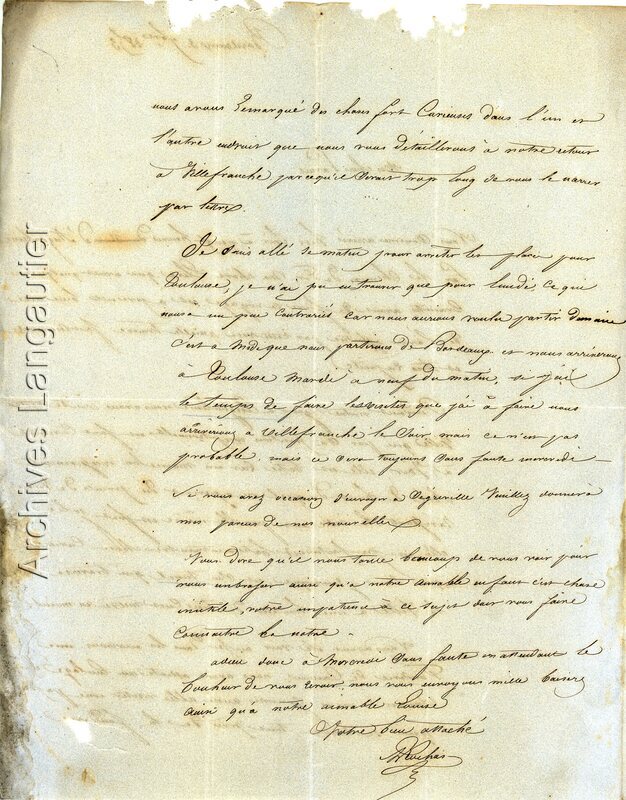 nous avons remarqué des choses fort Curieuses dans l'un et
l'autre endroit que nous vous détaillerons à notre retour
à Villefranche parcequ'il serait trop long de vous le narrer
par lettre
Je suis allé ce matin pour arreter les places pour
Toulouse, je n'ai pu en trouver que pour lundi ce qui
nous a un peu contrariés car nous aurions voulu partir
c'est à midi que nous partirons de Bordeaux et nous arriverons
à Toulouse mardi à neuf du matin, si j'ai
le temps de faire les visites que j'ai à faire nous
arriverons à Villefranche le soir mais ce n'est pas
probable, mais ce sera toujours sans faute mercredi
Si vous avez occasion d'envoyer à Veuillez donner à
mes parens de nos nouvelles
Vous dire qu'il nous tarde beaucoup de vous voir pour
vous embrasser ainsi qu'à notre aimable enfant c'est chose
inutile, votre impatience à ce sujet doit vous faire
Connaitre la notre.
adieu donc à Mercredi sans faute en attendant le
bonheur de vous revoir nous vous envoyons mille baisers
ainsi qu'à notre aimable Louise
Votre bien attaché
Archives Langautier